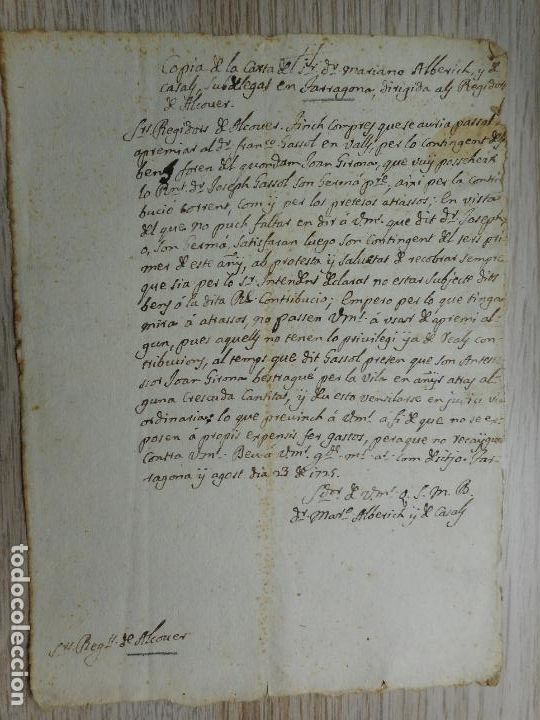 Copia de la Carta del Sr. Dr. Mariano Alberich, y de
Casals, subdelegat en Tarragona, dirigida als Regidors
de Alcover.
Srs. Regidors de Alcover. Tinch compres que se auria passat
apremiar al Dr. Franco. Gassol en Valls, per lo contingent dels
bens foren del quondam Joan Girona, que vuy posseheix
lo Rnt. Dr. Joseph Gassol son Germá pre., aixi per la contri
bució corrent, com y per los pretesos atrassos: En vista
del que no puch faltar en dir á Vms. que dit Dr. Joseph,
o, son Germa, satisfaran luego son Contingent del ters pri
mer de este añy, ab protesta y salvetat de recobrar sempre
que sia per lo Sr. Intendent declarat no estar subjecte dits
bens á la dita Rl. Contribució; Empero per lo que tinga
mira á atrassos, no passen Vms. á usar de apremi al
gun, pues aquells no tenen lo privilegi ya de reals con
tribucions, al temps que dit Gassol preten que son Anteces
sor Joan Girona bestragué per la Vila en añys atras al
guna Crescuda Cantitat, y deu esta ventilarse en judici via
ordinaria; lo que previnch á Vms. á fi de que no se ex
posen a propis expensis fer gastos, peraque no recaygan
contra Vms. Deu á Vms. gde. ms. as. com desitjo. Tar
ragona y agost dia 23 de 1725.
Sdor. de Vms. q. S. M. B.
Dr. Maro. Alberich y de Casals
Srs. Regrs. de Alcover
todocoleccion